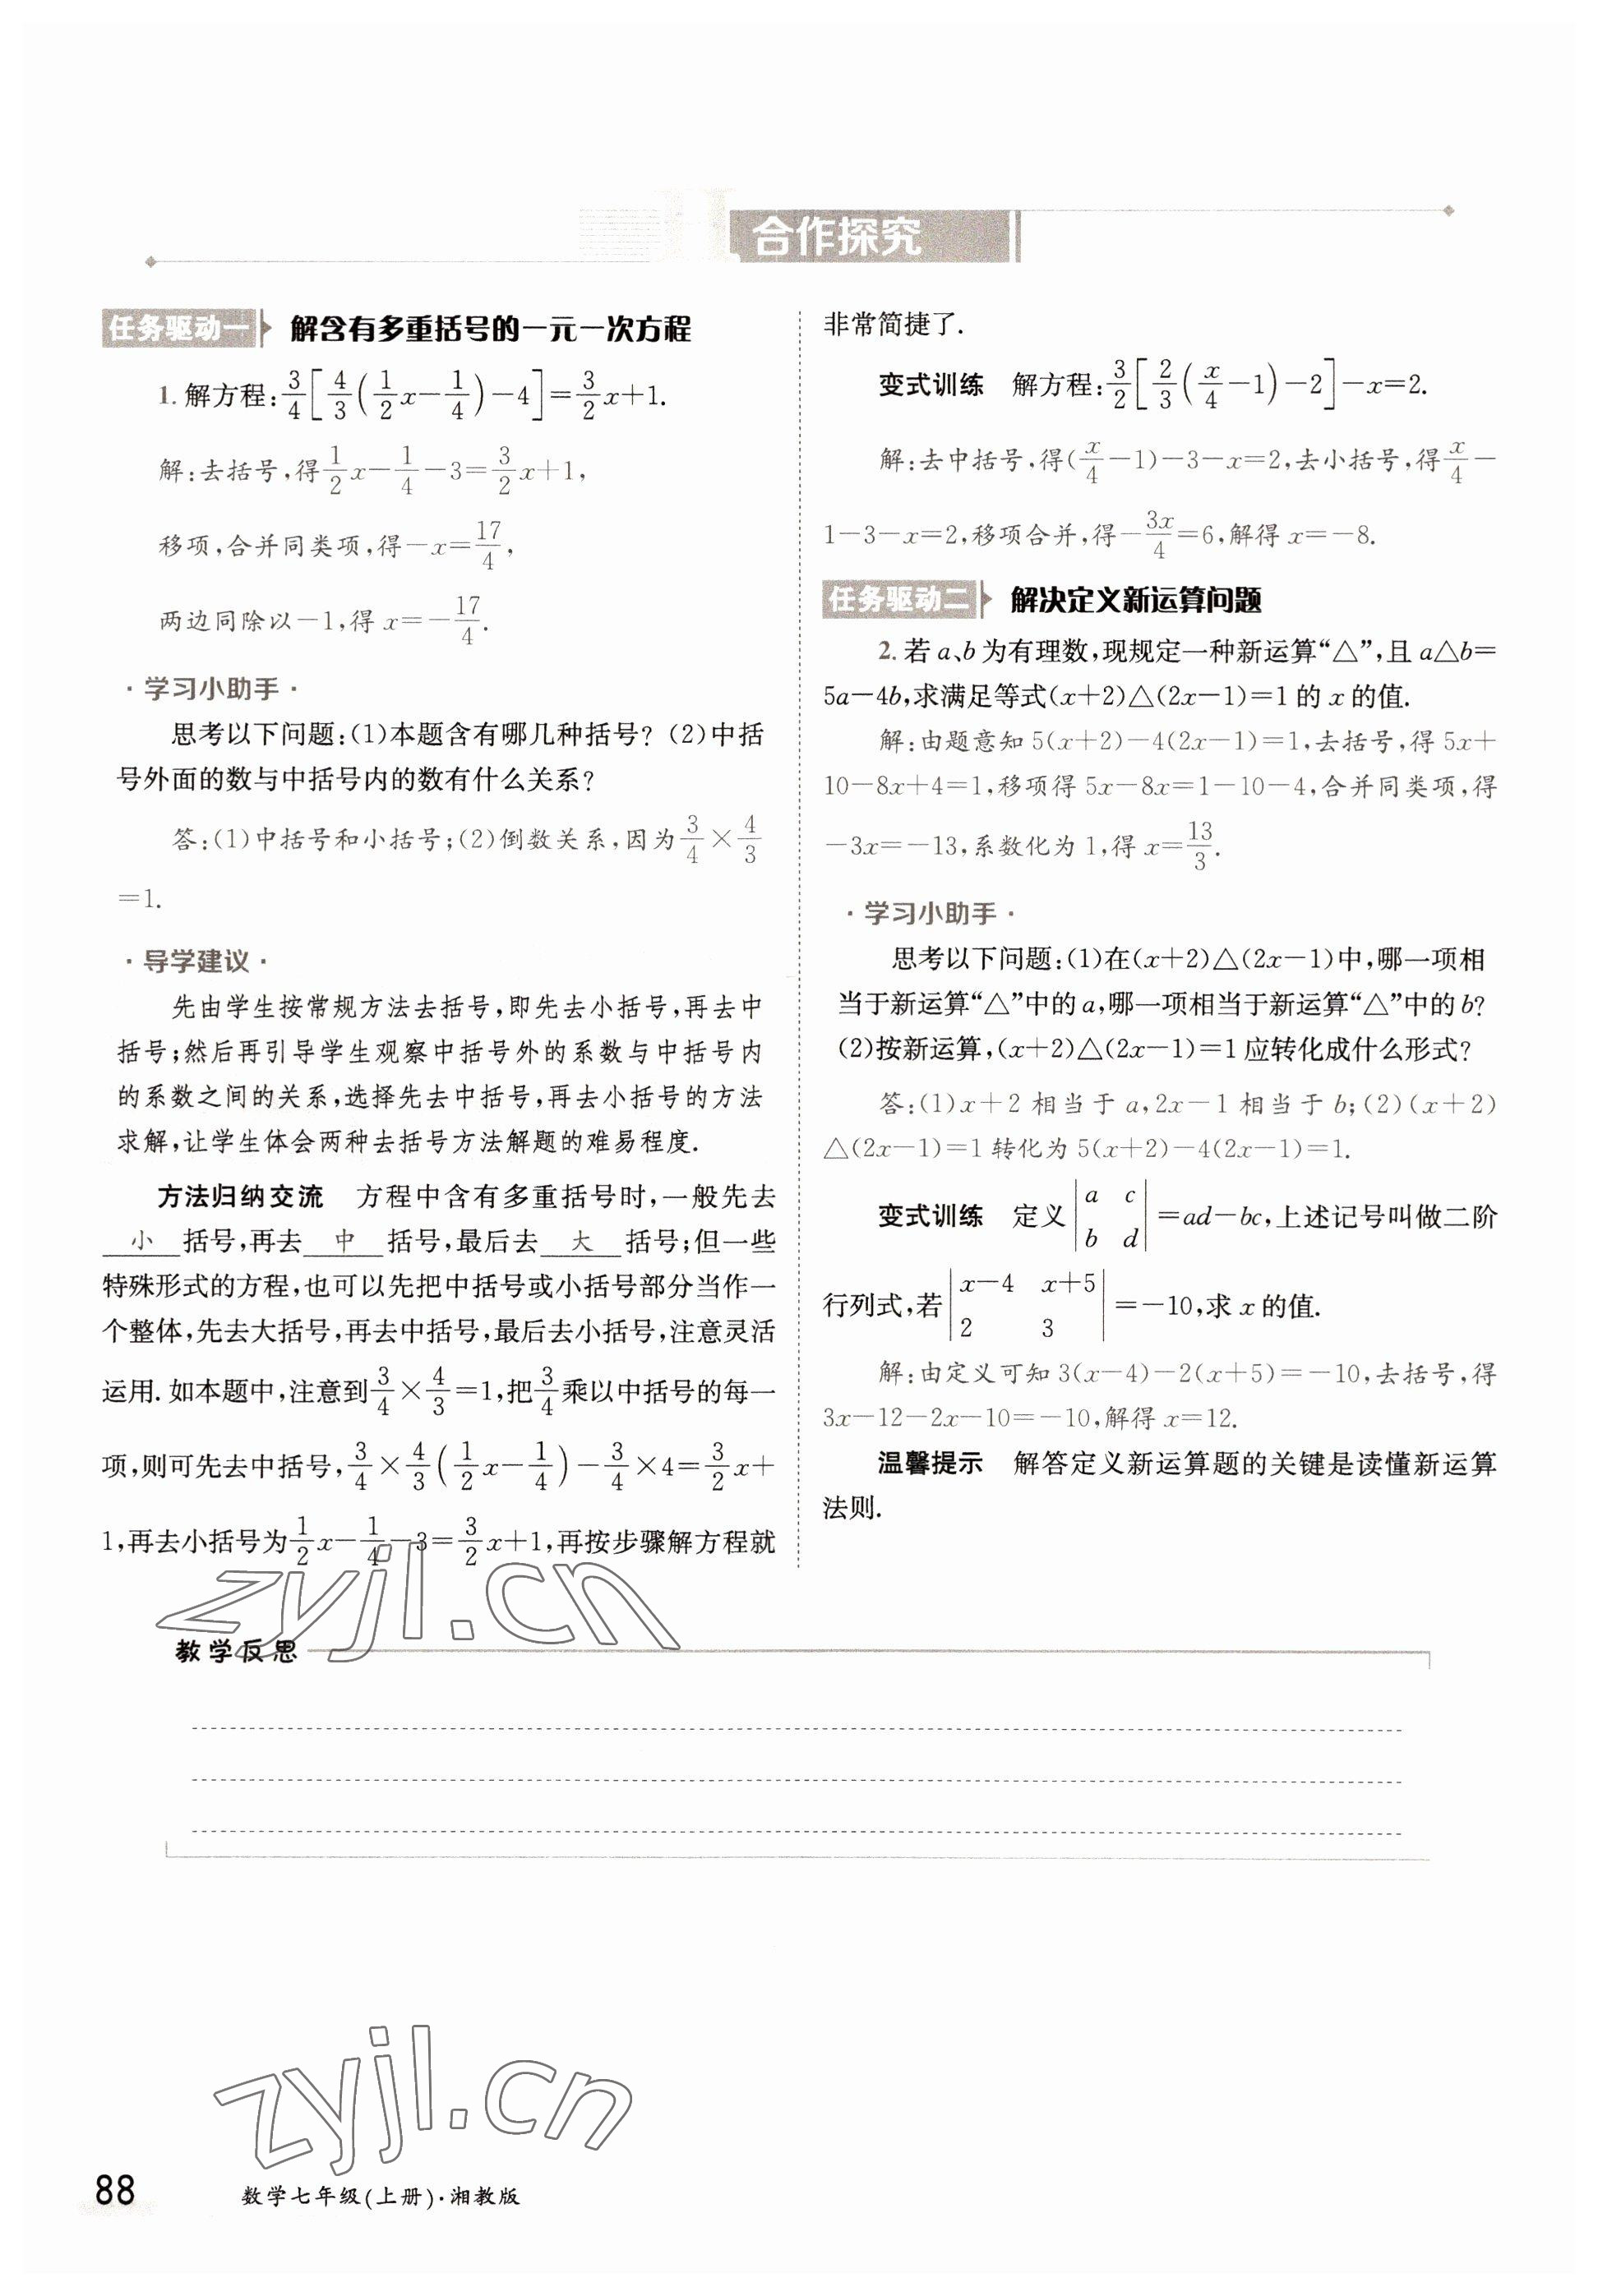 合作探究
任务驱动一 解含有多重括号的一元一次方程
1. 解方程:3/4[4/3(1/2x-1/4)-4]=3/2x+1.
解:去括号,得1/2x-1/4-3=3/2x+1,
移项,合并同类项,得-x=17/4,
两边同除以-1,得 x=-17/4.
·学习小助手·
思考以下问题:(1)本题含有哪几种括号? (2)中括
号外面的数与中括号内的数有什么关系?
答:(1)中括号和小括号;(2)倒数关系,因为3/4×4/3
=1.
·导学建议·
先由学生按常规方法去括号,即先去小括号,再去中
括号;然后再引导学生观察中括号外的系数与中括号内
的系数之间的关系,选择先去中括号,再去小括号的方法
求解,让学生体会两种去括号方法解题的难易程度.
方法归纳交流 方程中含有多重括号时,一般先去
小 括号,再去 中 括号,最后去 大 括号;但一些
特殊形式的方程,也可以先把中括号或小括号部分当作一
个整体,先去大括号,再去中括号,最后去小括号,注意灵活
运用. 如本题中,注意到3/4×4/3=1,把3/4乘以中括号的每一
项,则可先去中括号,3/4×4/3(1/2x-1/4)-3/4×4=3/2x+
1,再去小括号为1/2x-1/4-3=3/2x+1,再按步骤解方程就
非常简捷了.
变式训练 解方程:3/2[2/3(x/4-1)-2]-x=2.
解:去中括号,得(x/4-1)-3-x=2,去小括号,得x/4-
1-3-x=2,移项合并,得-3x/4=6,解得 x=-8.
任务驱动二 解决定义新运算问题
2. 若 a、b 为有理数,现规定一种新运算“△”,且 a△b=
5a-4b,求满足等式(x+2)△(2x-1)=1 的 x 的值.
解:由题意知 5(x+2)-4(2x-1)=1,去括号,得 5x+
10-8x+4=1,移项得 5x-8x=1-10-4,合并同类项,得
-3x=-13,系数化为 1,得 x=13/3.
·学习小助手·
思考以下问题:(1)在(x+2)△(2x-1)中,哪一项相
当于新运算“△”中的 a,哪一项相当于新运算“△”中的 b?
(2)按新运算,(x+2)△(2x-1)=1 应转化成什么形式?
答:(1)x+2 相当于 a,2x-1 相当于 b;(2)(x+2)
△(2x-1)=1 转化为 5(x+2)-4(2x-1)=1.
变式训练 定义|a c; b d|=ad-bc,上述记号叫做二阶
行列式,若|x-4 x+5; 2 3|=-10,求 x 的值.
解:由定义可知 3(x-4)-2(x+5)=-10,去括号,得
3x-12-2x-10=-10,解得 x=12.
温馨提示 解答定义新运算题的关键是读懂新运算
法则.
zyjl.cn
教学反思
zyjl.cn
88
数学七年级(上册)·湘教版